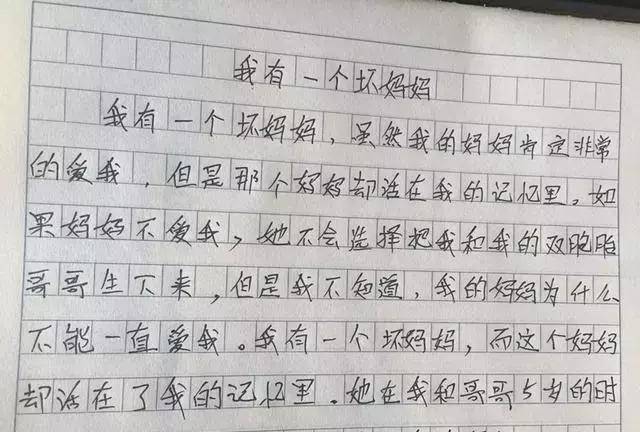 我有一个坏妈妈
我有一个坏妈妈，虽然我的妈妈肯定非常
的爱我，但是那个妈妈却活在我的记忆里。如
果妈妈不爱我，她不会选择把我和我的双胞胎
哥哥生下来，但是我不知道，我的妈妈为什么
不能一直爱我。我有一个坏妈妈，而这个妈妈
却活在了我的记忆里。她在我和哥哥5岁的时